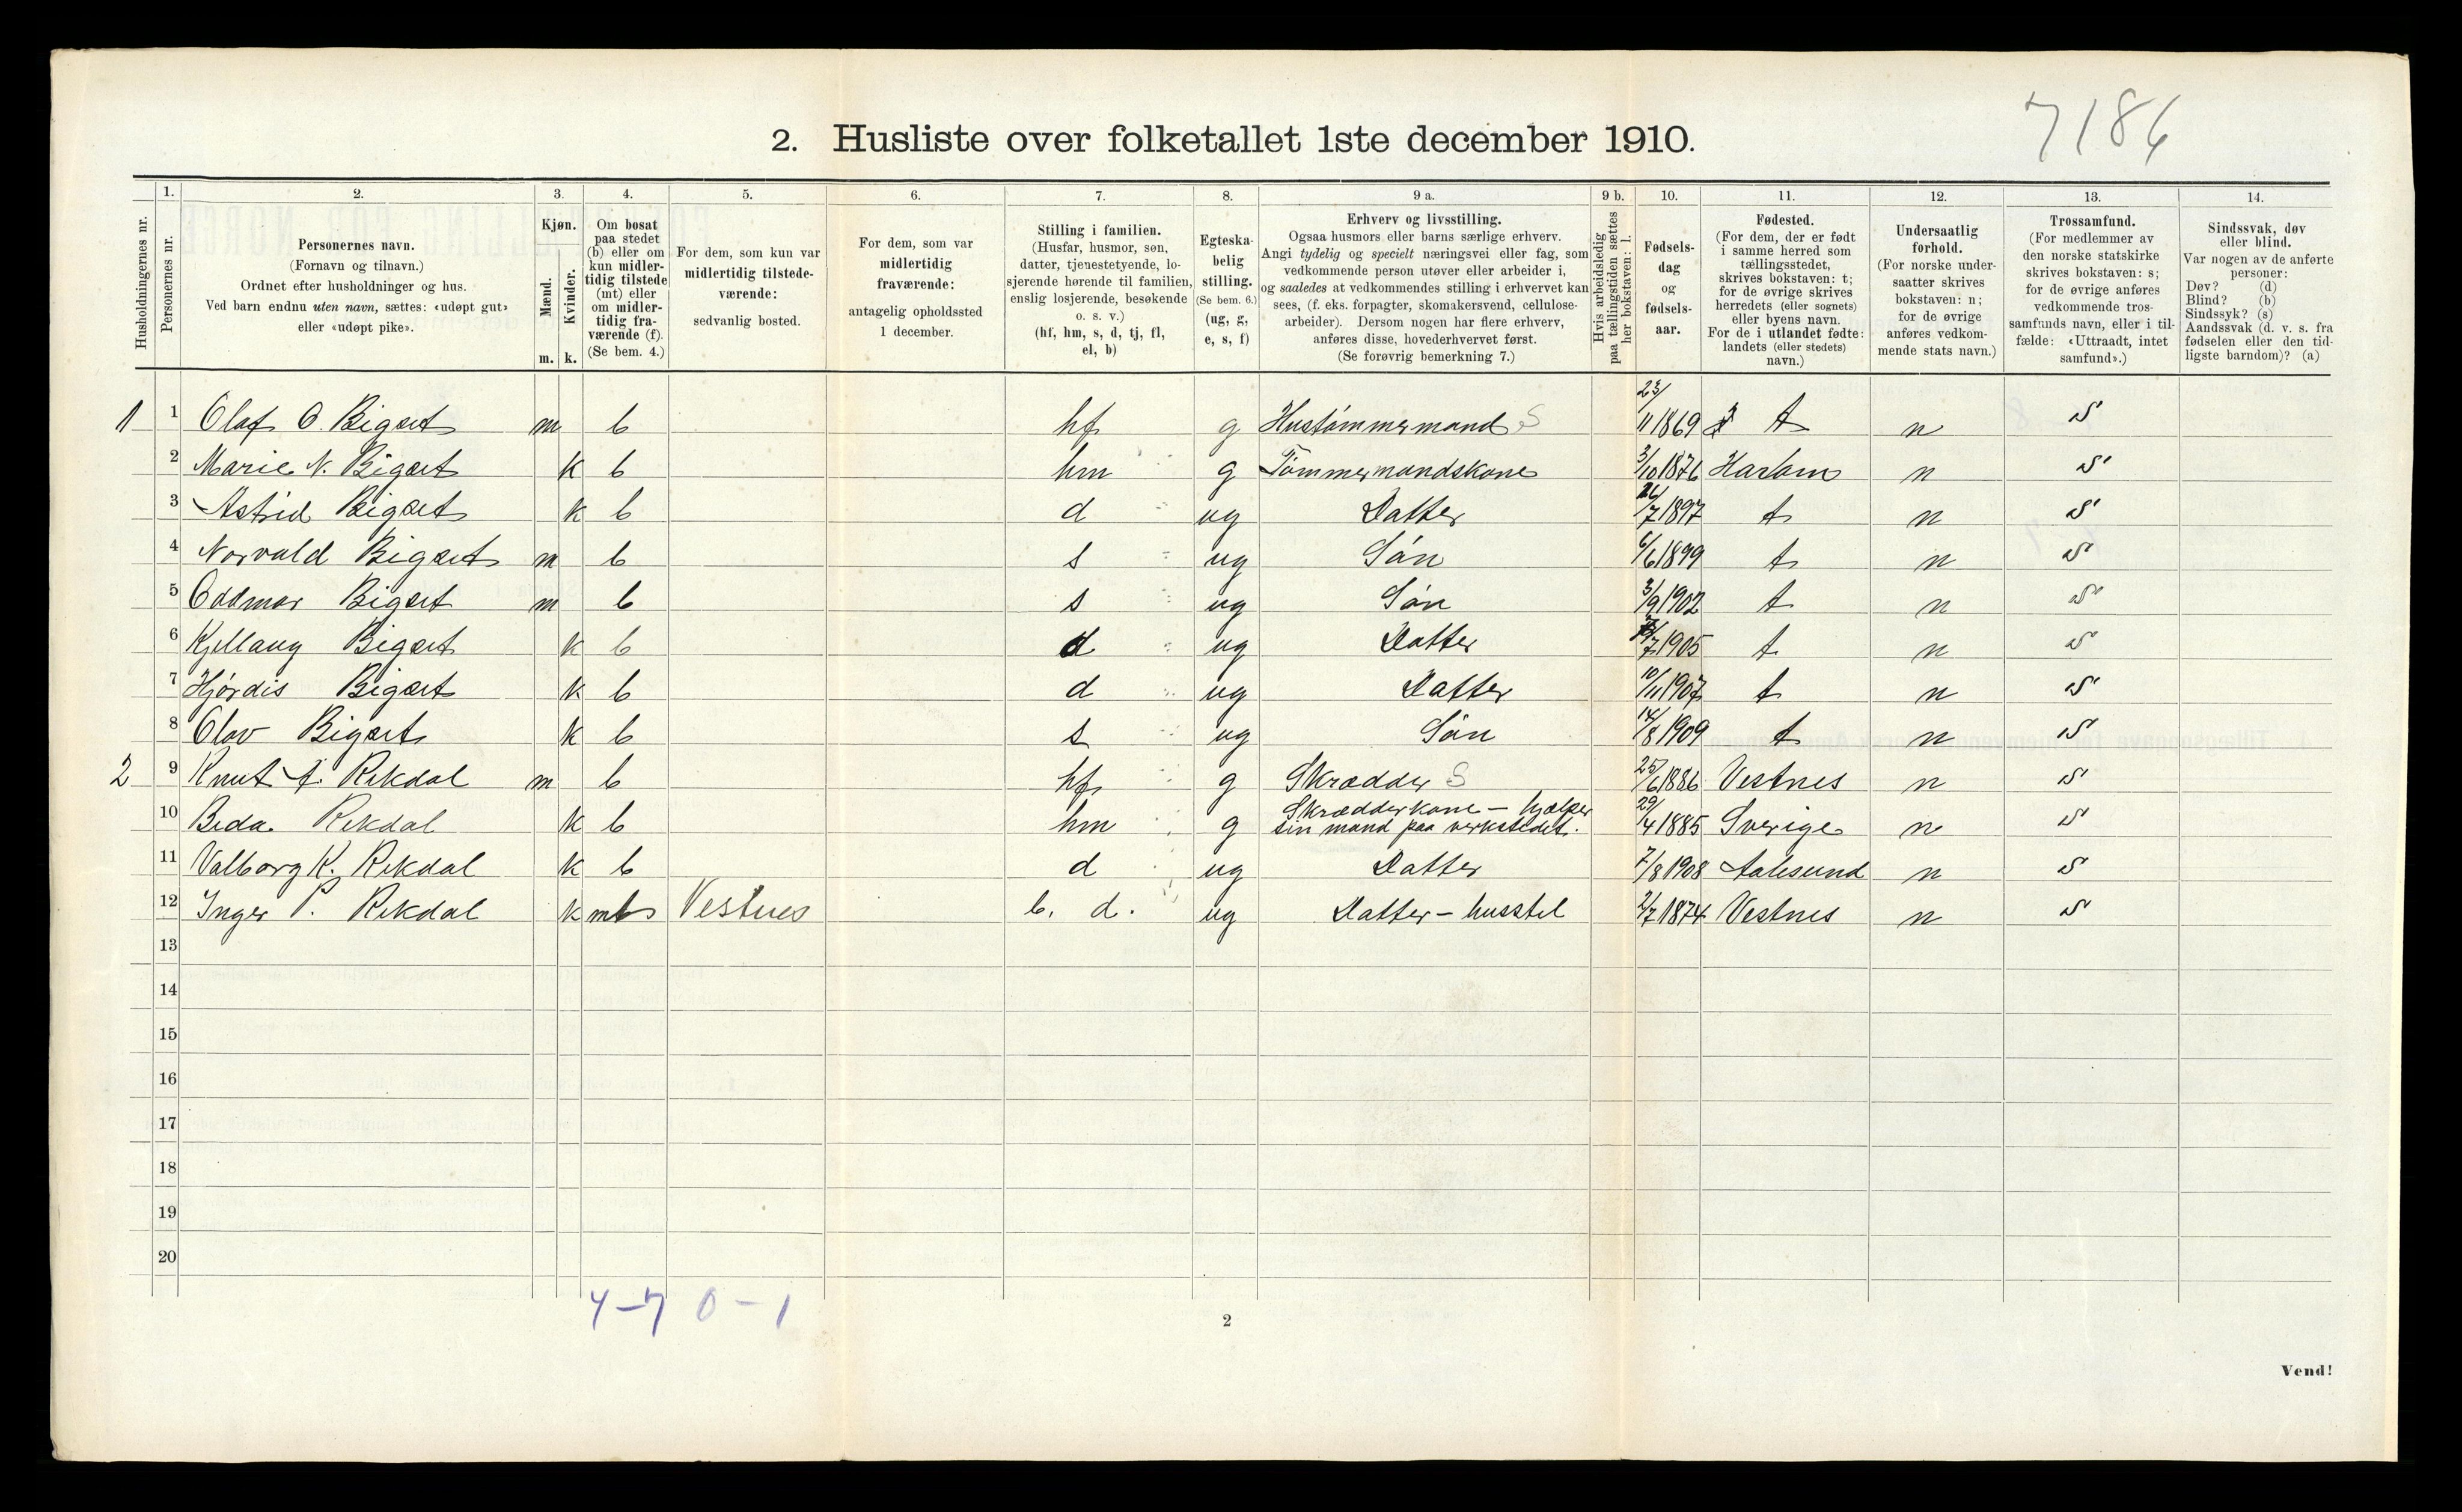 7186
2. Husliste over folketallet 1ste december 1910.
Husholdningernes nr.
1.
Personernes nr.
2.
Personernes navn.
(Fornavn og tilnavn.)
Ordnet efter husholdninger og hus.
Ved barn endnu uten navn, sættes: «udøpt gut»
eller «udøpt pike».
3.
Kjøn.
Mænd.
Kvinder.
m. k.
4.
Om bosat
paa stedet
(b) eller om
kun midler-
tidig tilstede
(mt) eller
om midler-
tidig fra-
værende (f).
(Se bem. 4.)
5.
For dem, som kun var
midlertidig tilstede-
værende:
sedvanlig bosted.
6.
For dem, som var
midlertidig
fraværende:
antagelig opholdssted
1 december.
7.
Stilling i familien.
(Husfar, husmor, søn,
datter, tjenestetyende, lo-
sjerende hørende til familien,
enslig losjerende, besøkende
o. s. v.)
(hf, hm, s, d, tj, fl,
el, b)
8.
Egteska-
belig
stilling.
(Se bem. 6.)
(ug, g,
e, s, f)
9 a.
Erhverv og livsstilling.
Ogsaa husmors eller barns særlige erhverv.
Angi tydelig og specielt næringsvei eller fag, som
vedkommende person utøver eller arbeider i,
og saaledes at vedkommendes stilling i erhvervet kan
sees, (f. eks. forpagter, skomakersvend, cellulose-
arbeider). Dersom nogen har flere erhverv,
anføres disse, hovederhvervet først.
(Se forøvrig bemerkning 7.)
9 b.
Hvis arbeidsledig
paa tællingstiden sættes
her bokstaven: l.
10.
Fødsels-
dag
og
fødsels-
aar.
11.
Fødested.
(For dem, der er født
i samme herred som
tællingsstedet,
skrives bokstaven: t;
for de øvrige skrives
herredets (eller sognets)
eller byens navn.
For de i utlandet fødte:
landets (eller stedets)
navn.)
12.
Undersaatlig
forhold.
(For norske under-
saatter skrives
bokstaven: n;
for de øvrige
anføres vedkom-
mende stats navn.)
13.
Trossamfund.
(For medlemmer av
den norske statskirke
skrives bokstaven: s;
for de øvrige anføres
vedkommende tros-
samfunds navn, eller i til-
fælde: «Uttraadt, intet
samfund».)
14.
Sindssvak, døv
eller blind.
Var nogen av de anførte
personer:
Døv? (d)
Blind? (b)
Sindssyk? (s)
Aandssvak (d. v. s. fra
fødselen eller den tid-
ligste barndom)? (a)
1 1 Olaf O. Bigset m b hf g Hustømmermand S 23/11 1869 t n S
2 Marie N. Bigset k b hm g Tømmermandskone 3/10 1876 Harham n S
3 Astrid Bigset k b d ug Datter /7 1897 t n S
4 Norvald Bigset m b s ug Søn 6/6 1899 t n S
5 Oddmar Bigset m b s ug Søn 3/9 1902 t n S
6 Kjellaug Bigset k b d ug Datter /7 1905 t n S
7 Hjørdis Bigset k b d ug Datter 10/11 1907 t n S
8 Olav Bigset k b s ug Søn 14/8 1909 t n S
2 9 Knut Rekdal m b hf g Skrædder S 25/6 1886 Vestnes n S
10 Beda Rekdal k b hm g Skrædderkone - hjælper
sin mand paa verkstedet. 29/4 1885 Sverige n S
11 Valborg K. Rekdal k b d ug Datter 7/8 1908 Aalesund n S
12 Inger P. Rekdal k mt Vestnes b. d. ug Datter - husstel 2/7 1874 Vestnes n S
13
14
15
16
17
18
19
20
4-7 0-1
2
Vend!